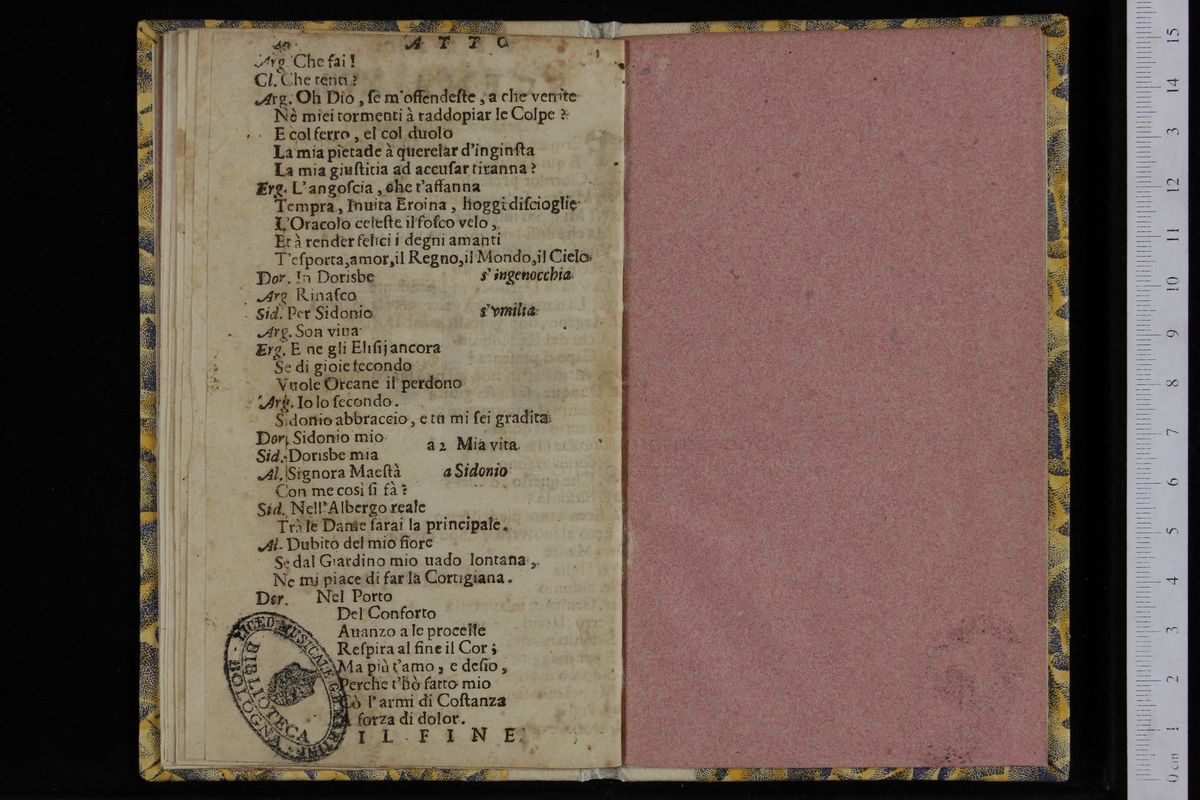 ATTO
Arg. Che fai!
Cl. Che tenti?
Arg. Oh Dio, se m'offendeste, a che venite
Nè miei tormenti à raddopiar le Colpe?
E col ferro, el col duolo
La mia pietade à querelar d'inginsta
La mia giustitia ad accusar tiranna?
Erg. L'angoscia, che t'affanna
Tempra, Inuita Eroina, hoggi discioglie
L'Oracolo celeste il fosco velo,
Et à render felici i degni amanti
T'esporta, amor, il Regno, il Mondo, il Cielo
Dor. In Dorisbe s'ingenocchia
Arg Rinasco
Sid. Per Sidonio s'vmilia
Arg. Son viua
Erg. E ne gli Elisij ancora
Se di gioie fecondo
Vuole Orcane il perdono
Arg. Io lo secondo.
Sidonio abbraccio, e tu mi sei gradita
Dor. Sidonio mio
a 2 Mia vita
Sid. Dorisbe mia
Al. Signora Maestà a Sidonio
Con me così si fà?
Sid. Nell'Albergo reale
Trà le Dame sarai la principale.
Al. Dubito del mio fiore
Se dal Giardino mio uado lontana,
Ne mi piace di far la Cortigiana.
Dor. Nel Porto
Del Conforto
Auanzo a le procelle
Respira al fine il Cor;
Ma più t'amo, e desio,
Perche t'hò fatto mio
Cò l'armi di Costanza
A forza di dolor.
IL FINE
LICEO MUSICALE G.B. MARTINI
BIBLIOTECA
BOLOGNA
0 cm 1 2 3 4 5 6 7 8 9 10 11 12 13 14 15